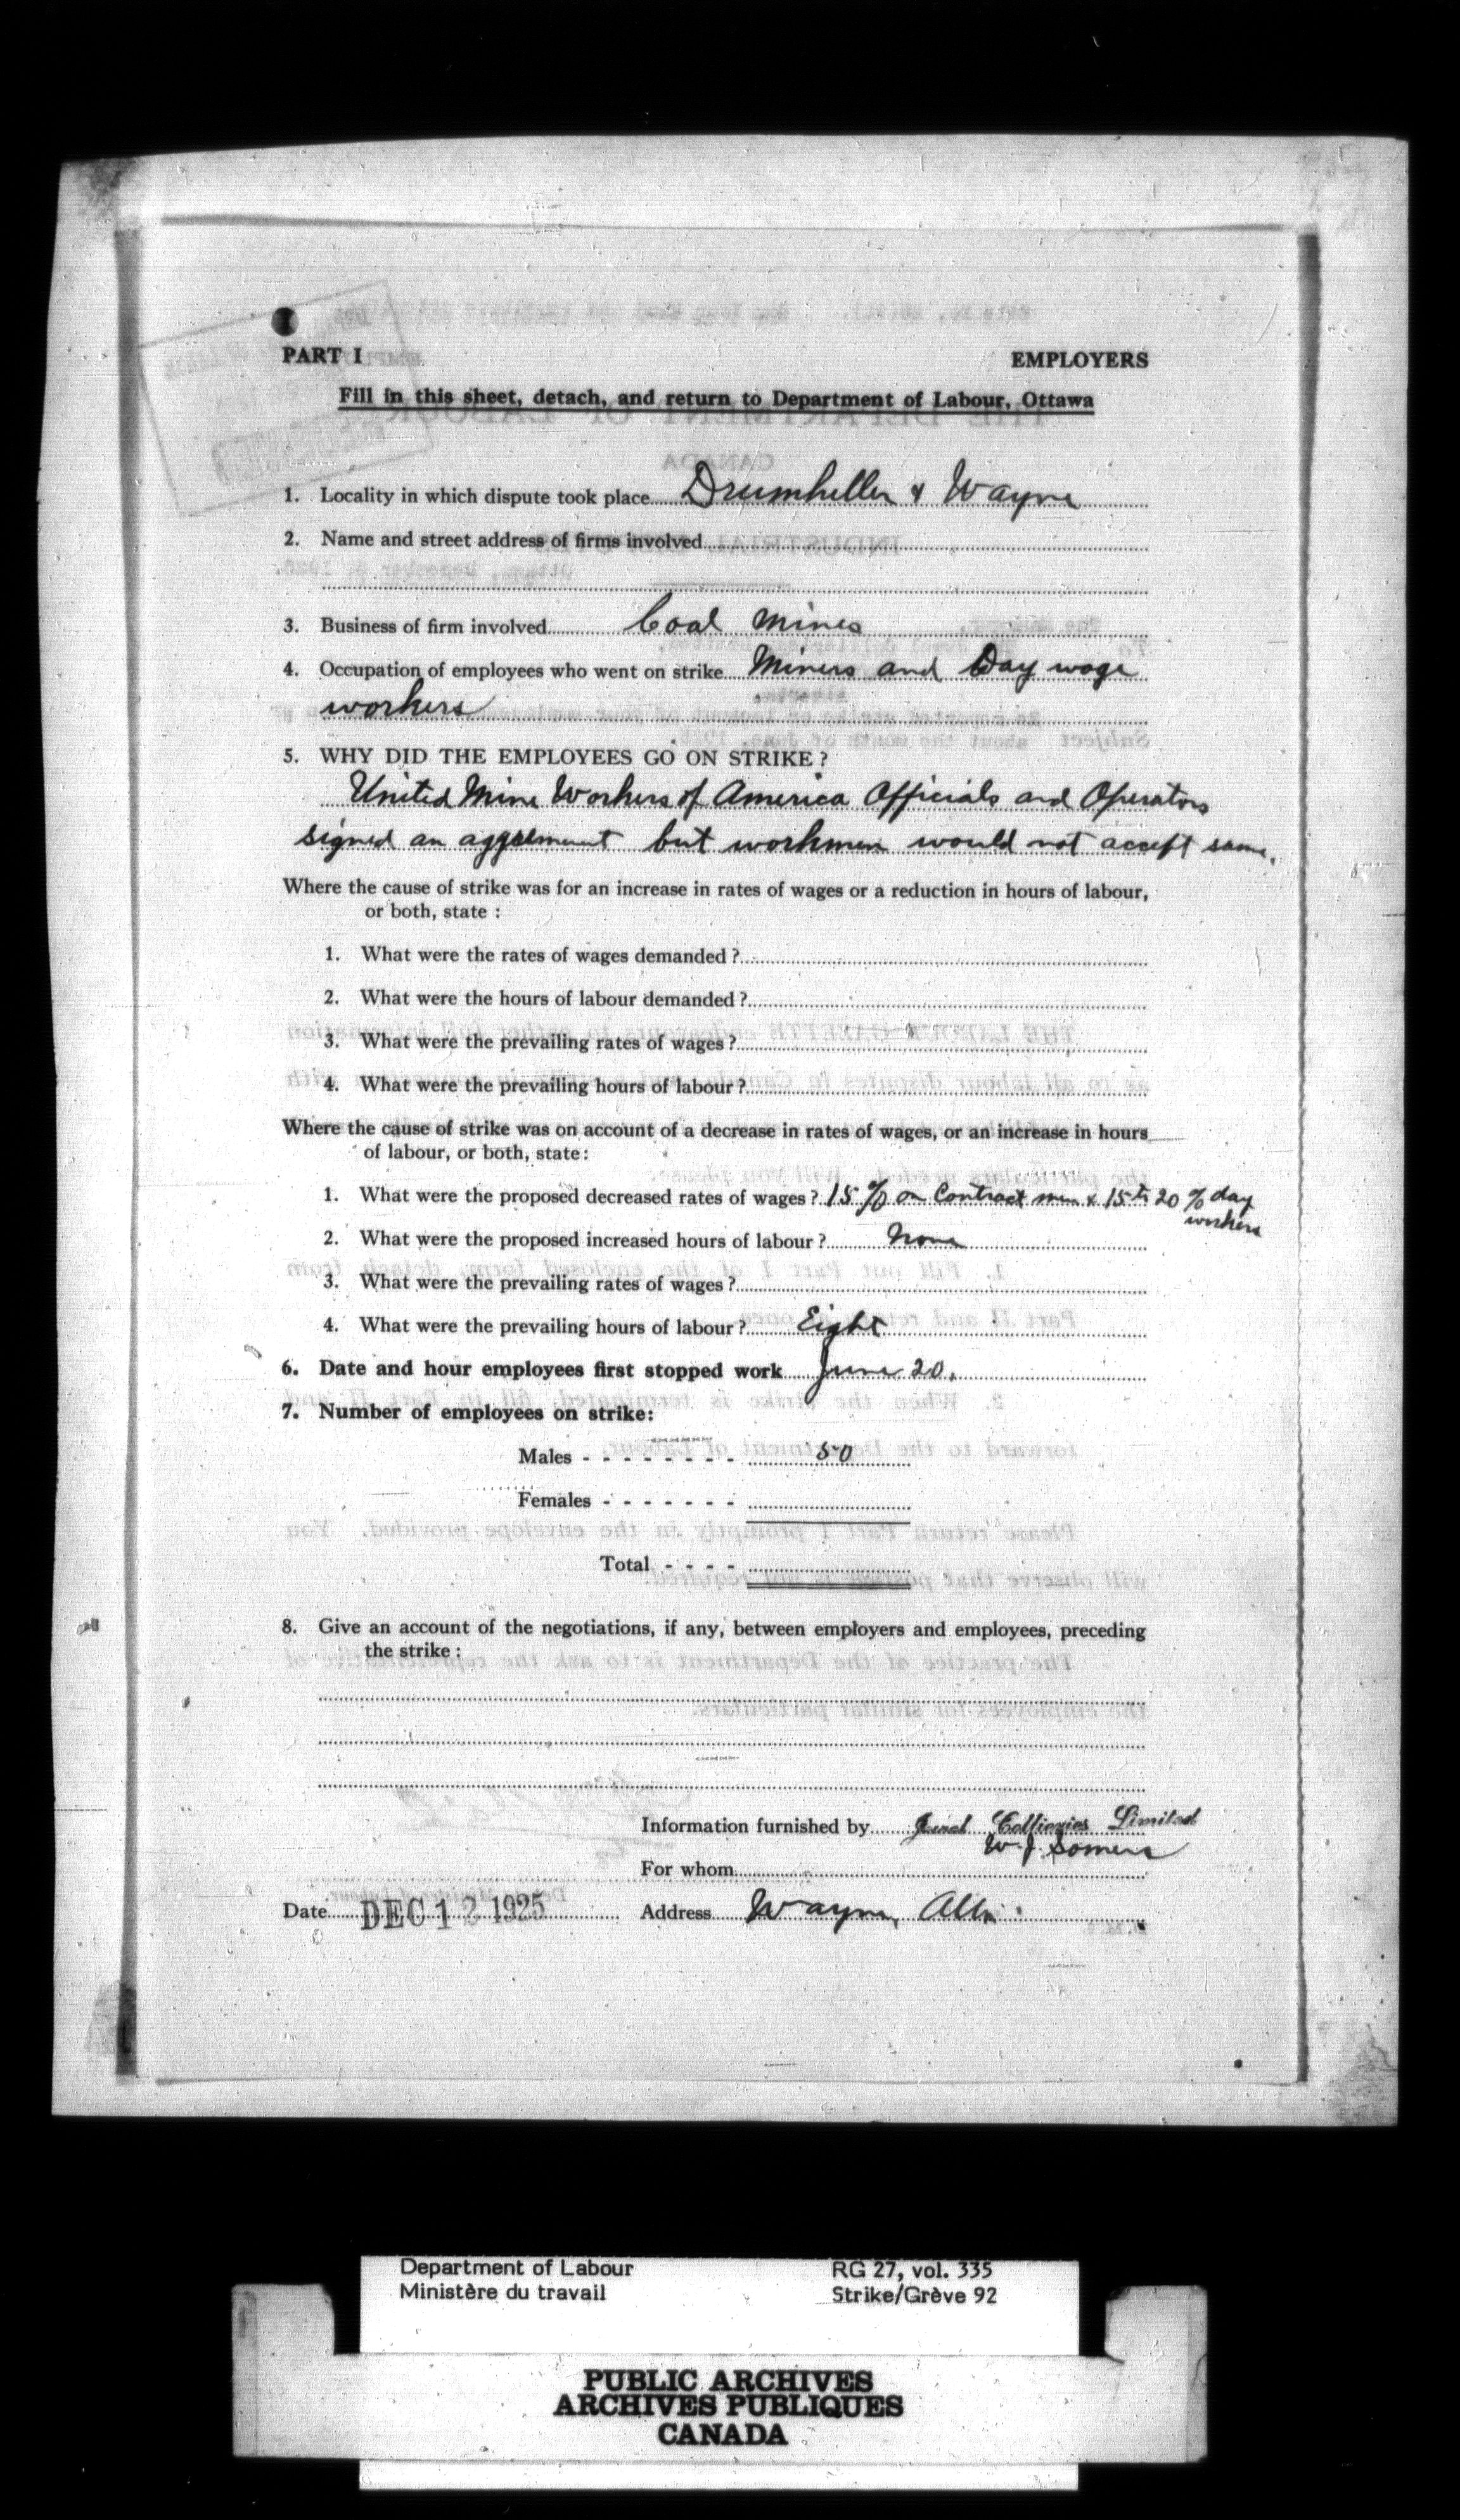 PART I EMPLOYERS
Fill in this sheet, detach, and return to Department of Labour, Ottawa
1. Locality in which dispute took place Drumheller & Wayne
2. Name and street address of firms involved
3. Business of firm involved Coal Mines
4. Occupation of employees who went on strike Miners and Day wage
workers
5. WHY DID THE EMPLOYEES GO ON STRIKE?
United Mine Workers of America Officials and Operators
signed an aggreement but workmen would not accept same.
Where the cause of strike was for an increase in rates of wages or a reduction in hours of labour,
or both, state :
1. What were the rates of wages demanded ?
2. What were the hours of labour demanded ?
3. What were the prevailing rates of wages ?
4. What were the prevailing hours of labour ?
Where the cause of strike was on account of a decrease in rates of wages, or an increase in hours
of labour, or both, state:
1. What were the proposed decreased rates of wages ? 15% on Contract men & 15 to 20 % day
workers
2. What were the proposed increased hours of labour ? None
3. What were the prevailing rates of wages ?
4. What were the prevailing hours of labour ? Eight
6. Date and hour employees first stopped work June 20.
7. Number of employees on strike:
Males - - - - - - - - 50
Females - - - - - - -
Total - - - -
8. Give an account of the negotiations, if any, between employers and employees, preceding
the strike :
Information furnished by Jewel Collieries Limited
W. J. Somers
For whom
Date DEC 12 1925 Address Wayne, Alta.
Department of Labour RG 27, vol. 335
Ministère du travail Strike/Grève 92
PUBLIC ARCHIVES
ARCHIVES PUBLIQUES
CANADA